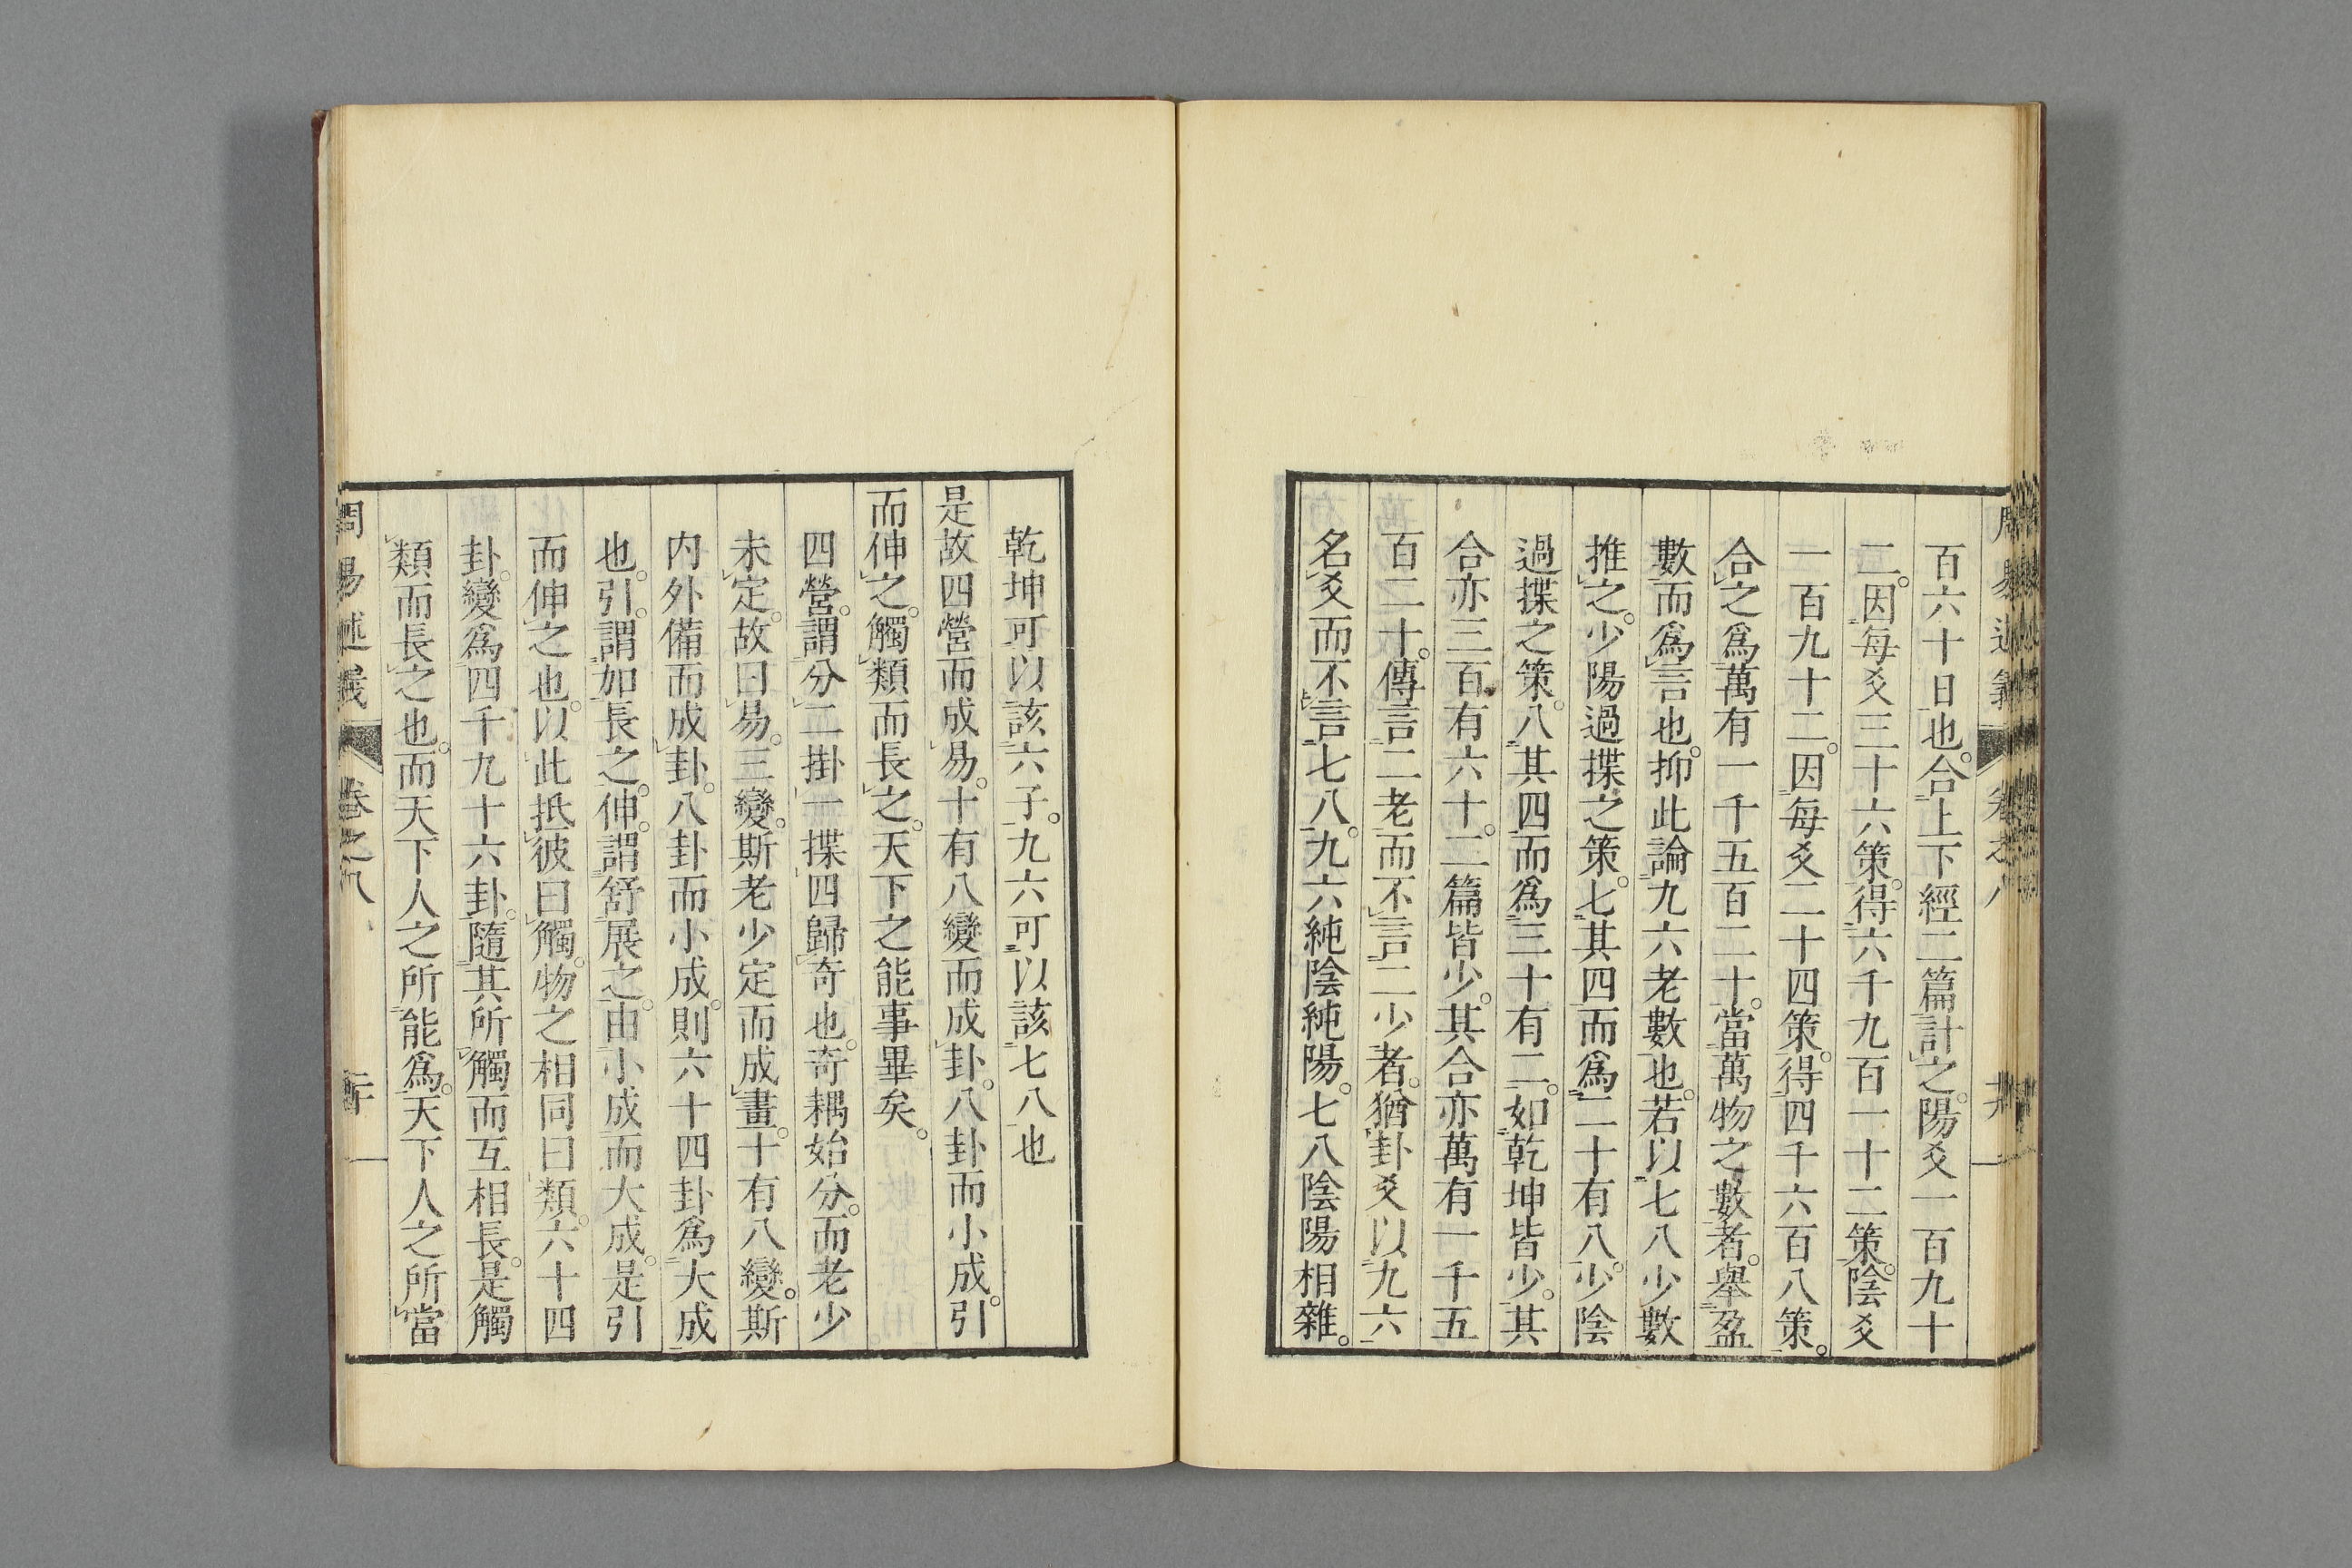 周易述義 卷之八
百六十日也。合上下經二篇計之。陽爻一百九十
二。因每爻三十六策。得六千九百一十二策。陰爻
一百九十二。因每爻二十四策。得四千六百八策。
合之爲萬有一千五百二十。當萬物之數者。舉盈
數而爲言也。抑此論九六老數也。若以七八少數
推之。少陽過揲之策。七其四而爲二十有八。少陰
過揲之策。八其四而爲三十有二。如乾坤皆少。其
合亦三百有六十。二篇皆少。其合亦萬有一千五
百二十。傳言二老而不言二少者。猶卦爻以九六
名爻而不言七八。九六純陰純陽。七八陰陽相雜。
乾坤可以該六子。九六可以該七八也
是故四營而成易。十有八變而成卦。八卦而小成。引
而伸之。觸類而長之。天下之能事畢矣。
四營。謂分二掛一揲四歸奇也。奇耦始分。而老少
未定。故曰易。三變。斯老少定而成畫。十有八變。斯
内外備而成卦。八卦而小成。則六十四卦爲大成
也。引。謂如長之。伸。謂舒展之。由小成而大成。是引
而伸之也。以此抵彼曰觸。物之相同曰類。六十四
卦。變爲四千九十六卦。隨其所觸而互相長。是觸
類而長之也。而天下人之所能爲。天下人之所當
周易述義 卷之八